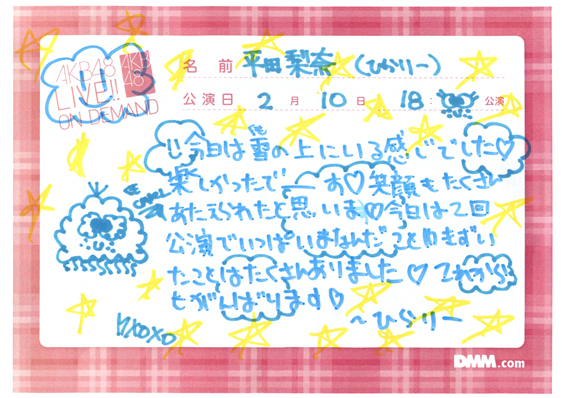 AKB48
LIVE!!
ON DEMAND
AKB
48
名前 平田梨奈 (ひらりー)
公演日 2月10日 18: 公演
!! 今日は雪の上にいる感じでした♡
楽しかったでーす♡笑顔もたくさん
あたえられたと思いま♡今日は2回
公演でいっぱいまなんだこと
たことはたくさんありました♡これから
もがんばります♡
~ひらりー
XOXO
DMM.com